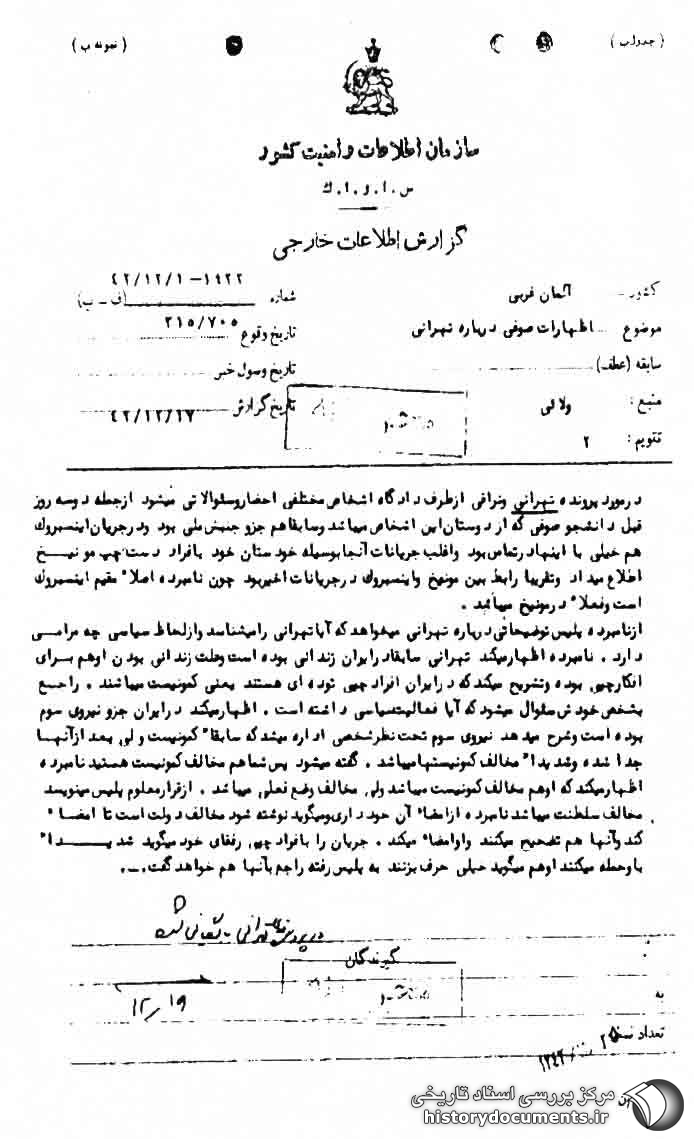 ( جدول ب ) ( نمونه ب )
سازمان اطلاعات و امنیت کشور
س . ا . و . ا . ك
گزارش اطلاعات خارجی
کشور آلمان غربی
موضوع اظهارات صوفی درباره تهرانی
سابقه (عطف)
منبع : ولائی
تقویم : ۲
شماره ۱۹۲۲ - ۴۲/۱۲/۱
(ف - ب)
تاریخ وقوع ۳۱۵/۷۰۵
تاریخ وصول خبر
تاریخ گزارش ۴۲/۱۲/۱۷
در مورد پرونده تهرانی ونراقی ازطرف دادگاه اشخاص مختلفی احضاروسئوالاتی میشود ازجمله دوسه روز
قبل دانشجو صوفی که از دوستان این اشخاص میباشد وسابقاهم جزو جنبش ملی بود ودرجریان اینسبروك
هم خیلی با اینها درتماس بود واغلب جریانات آنجا بوسیله خود ستان خود بافراد دست چپ مونیخ
اطلاع میداد وتقریبا رابط بین مونیخ واینسبروك درجریانات اخیربود چون نامبرده اصلاً مقیم اینسبروك
است وفعلاً درمونیخ میباشد .
ازنامبرده پلیس توضیحاتی درباره تهرانی میخواهد که آیاتهرانی رامیشناسد وازلحاظ سیاسی چه مرامی
دارد . نامبرده اظهارمیکند تهرانی سابقادرایران زندانی بوده است وعلت زندانی بودن اوهم برای
افکارچپی بوده وتشریح میکند که درایران افراد چپی توده ای هستند یعنی کمونیست میباشند . راجع
بشخص خودش سئوال میشود که آیا فعالیت سیاسی داشته است . اظهارمیکند درایران جزو نیروی سوم
بوده است وشرح میدهد نیروی سوم تحت نظر شخصی اداره میشد که سابقاً کمونیست ولی بعد ازآنها
جدا شده وشدیداً مخالف کمونیستها میباشد . گفته میشود پس شماهم مخالف کمونیست هستید نامبرده
اظهارمیکند که اوهم مخالف کمونیست میباشد ولی مخالف وضع فعلی میباشد . ازقرارمعلوم پلیس مینویسد
مخالف سلطنت میباشد نامبرده ازامضاً آن خودداری ومیگوید نوشته شود مخالف دولت است تا امضاً
کند وآنها هم تصحیح میکنند واوامضاً میکند . جریان را بافراد چپی رفقای خود میگوید شدیداً
باوحمله میکنند اوهم میگوید خیلی حرف بزنند به پلیس رفته راجع بآنها هم خواهد گفت .-.
در پرونده تهرانی بایگانی شود
گیرندگان
به
۱۲/۱۹
تعداد نسخه
مرکز بررسی اسناد تاریخی
historydocuments.ir